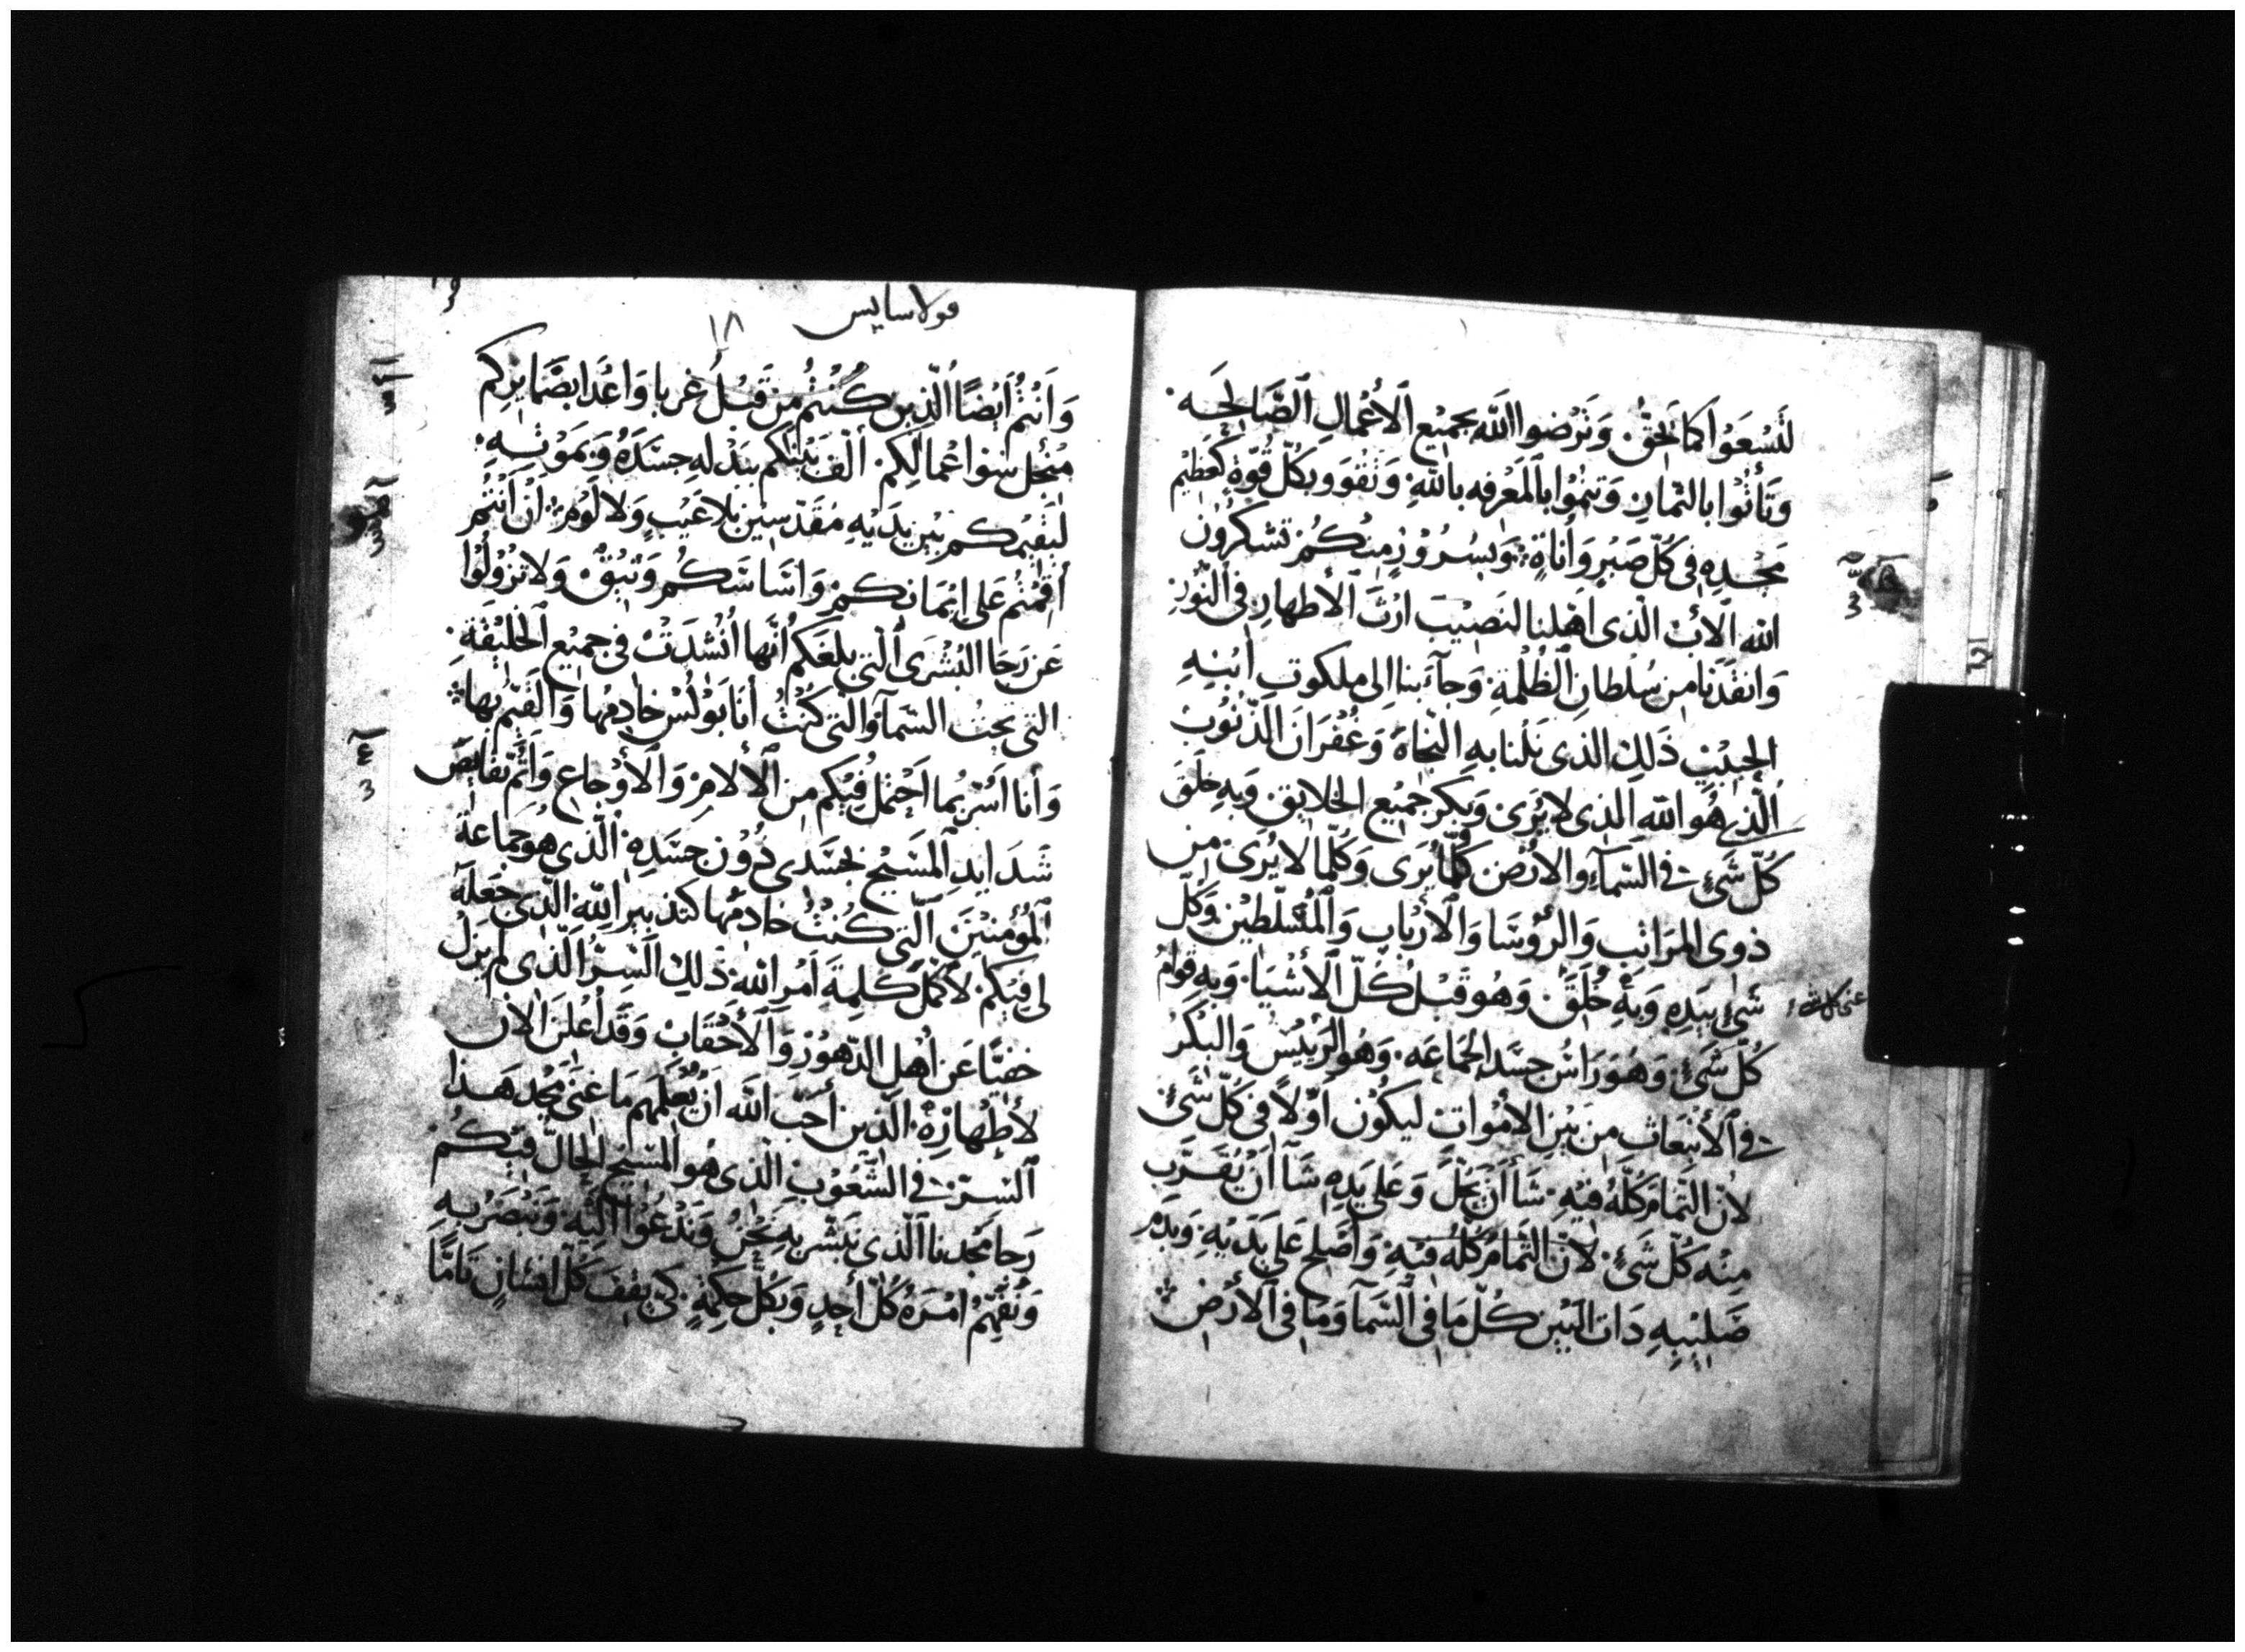 لتَسْعَوْا كما يَحِقُّ. وَتَرْضوا اللّه بجميْع الأعْمالِ الصَّالِحَه.
وَتَأتُوا بالثمارِ وَتنمُوْا بالمَعْرفه باللّهِ. وَتَقْوَوا بكلّ قُوّةٍ كعَظيْم
مَجْدِهِ فى كلّ صَبْرٍ وَأناةٍ. وَبسُرُوْرٍ منكُمْ تشكرُوْن
اللّه الأبْ الّذى أهْلنا لنصيْبَ ارْثَ الأطهارِ فى النّوْرِ
وَانقذَنا من سُلْطانِ الظُلْمَةِ. وَجآءَ بنا الى ملكوتِ ابْنِهِ
الحبيْبِ ذَلِك الذى نَلْنا بهِ النّجَاةَ وَغُفرَانَ الذّنُوْبْ
الّذى هُو اللّه الذى لا يُرَى وَبكرُ جميْع الخَلايق. وَبهِ خلَقَ
كلّ شَئٍ فى السّمآءِ والأرْض كلّما يُرَى وَكلّما لا يُرَى. من
ذوى المرَاتب وَالرّؤسَا وَالأرْبابِ وَالمُسَلّطيْن وَكلّ
شَئٍ بيَدِهِ وَبهِ خُلِقَ. وَهُو قَبْلُ كلّ الأشْيَا. وَبهِ قوامُ
عنى كل شئ
كُلّ شَئٍ. وَهُوَ رَاسُ جسَد الجَماعَه. وَهُو الرّئِيْسُ وَالبكْرُ
فى الأنْبعَاثِ منَ بَيْنِ الأمْوَاتِ ليكوْن أوّلاً فى كلّ شَئٍ
لأنّ التّمامَ كلّهُ فيْهِ. شَآ أنْ يَحُلّ وَعَلى يَدِهِ شَآ أنْ يُقَرّبَ
منْه كلّ شَئٍ. لأنّ التّمامُ كلّه فيْهِ وَأصْلحَ عَلى يَدَيْهِ وَبدَمِ
صَليْبِهِ دَات البَيْن كلّ مَا فى السّمآ وَمَا فى الأرْضِ
قولاسايس
١٨
وَأنتُمْ أيْضًا الّذين كُنْتُمْ منْ قَبْلُ غربا وَاعْدَا بضَمايركم
منْ اجل سُوْ اعْمالكم. ألّفَ بَيْنكم ببَدْلهِ جسَدَهُ وَبمَوْتهِ.
ليُقيْمَكم بَيْن يَدَيْهِ مُقَدّسيْن بلا عَيْبٍ وَلا لَوْمٍ. انْ أنْتُمْ
أقمْتُمْ عَلى ايْمَانكمْ وَاسَاسَكُم وَثيْقٌ. وَلا تزُوْلُوْا
عَنْ رَجَا البُشْرَى التى بلغَكمُ أنّها أنْشدَتْ فى جميْع الخَليْقَة.
التى تحتُ السّمآ والتى كُنْتُ أنَا بَوْلسْ خادمُها وَالقَيّمُ بها
وَأنا أسُرّ بما أحْتملُ فيْكم من الألامِ وَالأوْجَاع وَأتُمّ نقايصَ
شَدَايدِ المَسيْح بجسَدى دُوْن جسَدِهِ الّذى هُو جَماعَةُ
المُوْمنيْن التى كُنْتُ خَادمُها كتدْبيرِ اللّهِ الّذى جعَلهُ
لى فيْكم. لأُكمّلَ كلِمَةَ أمْرِ اللّه. ذَلِكَ السِرّ الّذى لم يَزَلْ
خفيّا عَنْ أهْلِ الدّهوْرِ وَالأحْقَابْ وَقَد أعْلنَ الأن
لأطْهارِهْ. الّذين أحَبّ اللّه أنْ يُعْلمَهم مَا غنَى مَجْد هَذا
السِرّ. فى الشّعُوْبِ الّذى هُو المَسيْح الحالّ فيْكُمْ
رَجا مَجْدنا الّذى نبَشّر بهِ نحْنُ وَندْعُوْا اليْهِ وَنُبَصّرُ بهِ
وَنُفهّمُ امْرَهُ كلّ أحدٍ وَبكلّ حكمَةٍ. كى يقفَ كلّ انسانٍ تَامًّا